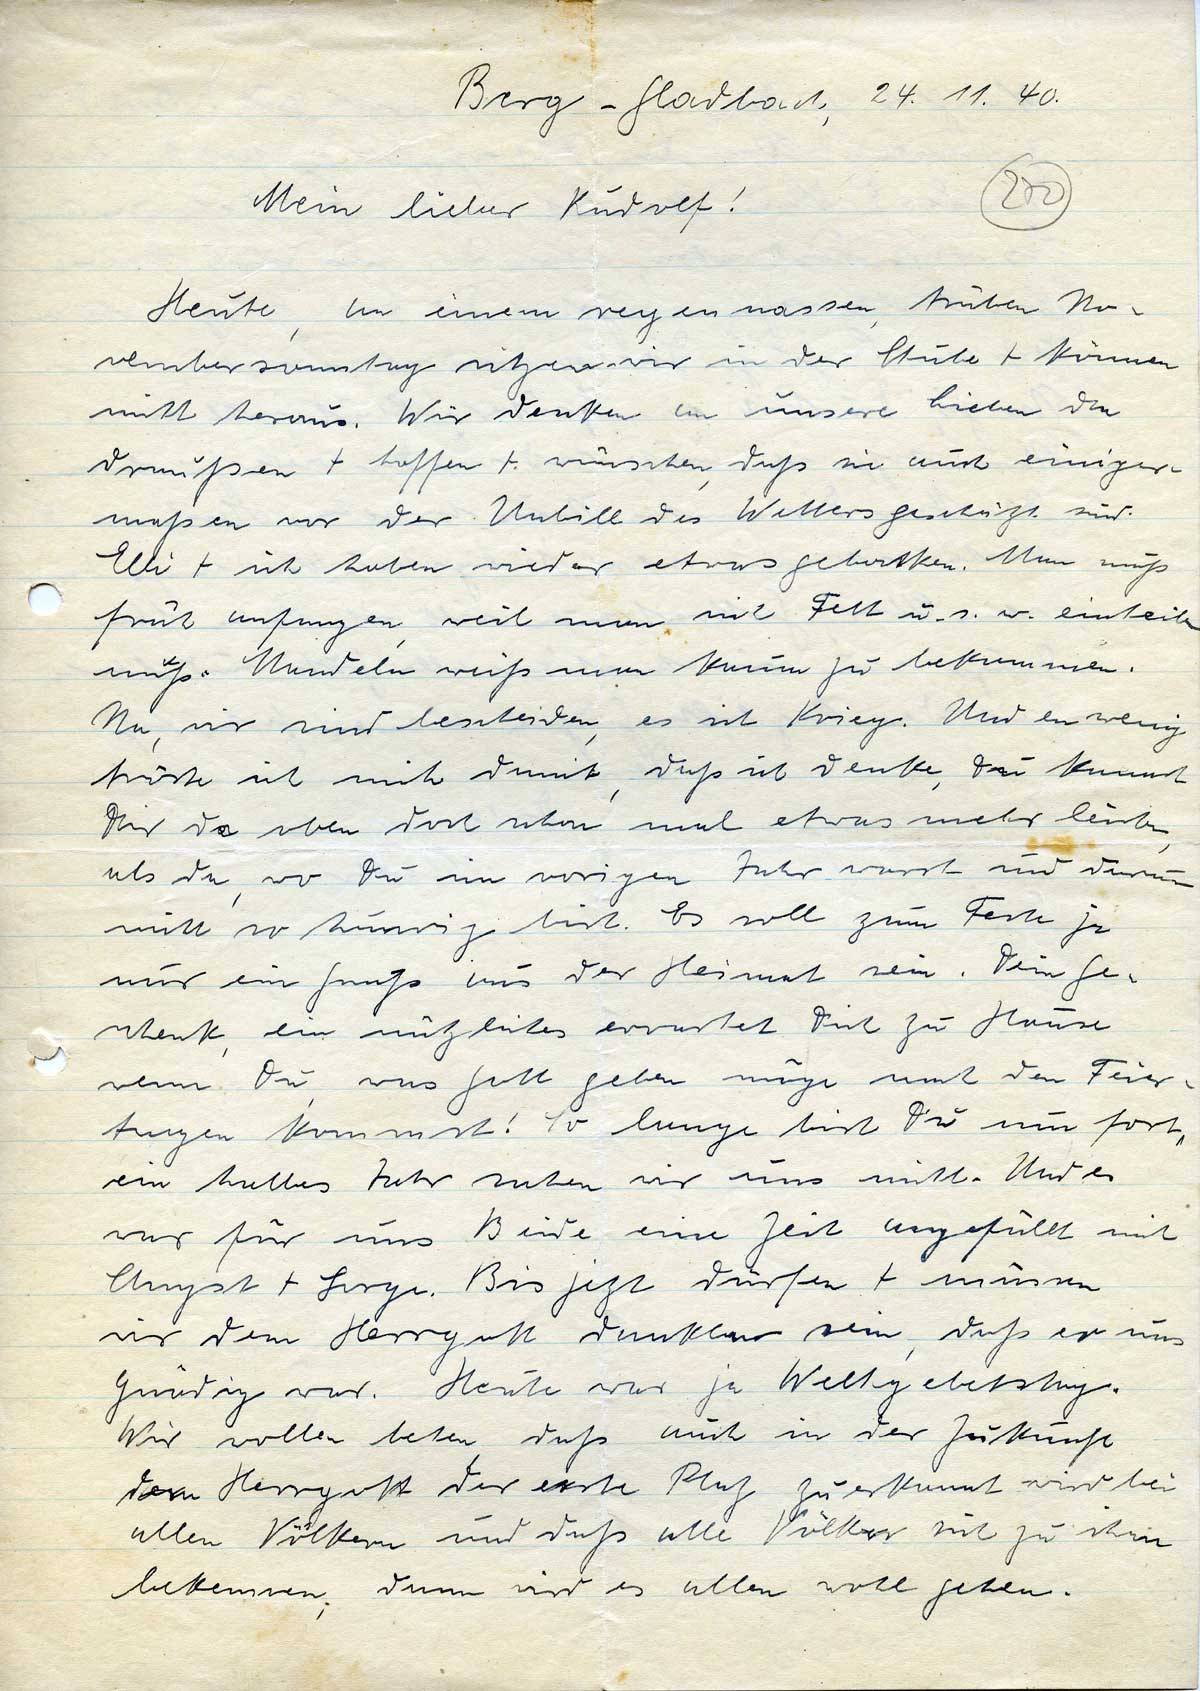 Berg-Gladbach, 24. 11. 40.
200
Mein lieber Rudolf!
Heute, an einem regennassen, trüben No-
vembersonntag sitzen wir in der Stube + können
nicht heraus. Wir denken an unsere Lieben da
draußen + hoffen + wünschen, daß sie auch einiger-
maßen vor der Unbill des Wetters geschützt sind.
Elli + ich haben wieder etwas gebacken. Man muß
früh anfangen, weil man mit Fett u. s. w. einteilen
muß. Mandeln weiß man kaum zu bekommen.
Na, wir sind bescheiden, es ist Krieg. Und ein wenig
tröste ich mich damit, daß ich denke, Du kannst
Dir da oben doch schon mal etwas mehr leisten,
als da, wo Du im vorigen Jahr warst und darum
nicht so hungrig bist. Es soll zum Feste ja
nur ein Gruß aus der Heimat sein. Dein Ge-
schenk, ein nützliches erwartet Dich zu Hause
wenn Du, was Gott geben möge nach den Feier-
tagen kommst! So lange bist Du nun fort,
ein halbes Jahr sahen wir uns nicht. Und es
war für uns Beide eine Zeit angefüllt mit
Angst + Sorge. Bis jetzt dürfen + müssen
wir dem Herrgott dankbar sein, daß er uns
gnädig war. Heute war ja Weltgebetstag.
Wir wollen beten daß auch in der Zukunft
dem Herrgott der erste Platz zuerkannt wird bei
allen Völkern und daß alle Völker sich zu ihm
bekennen, dann wird es allen wohl gehen.